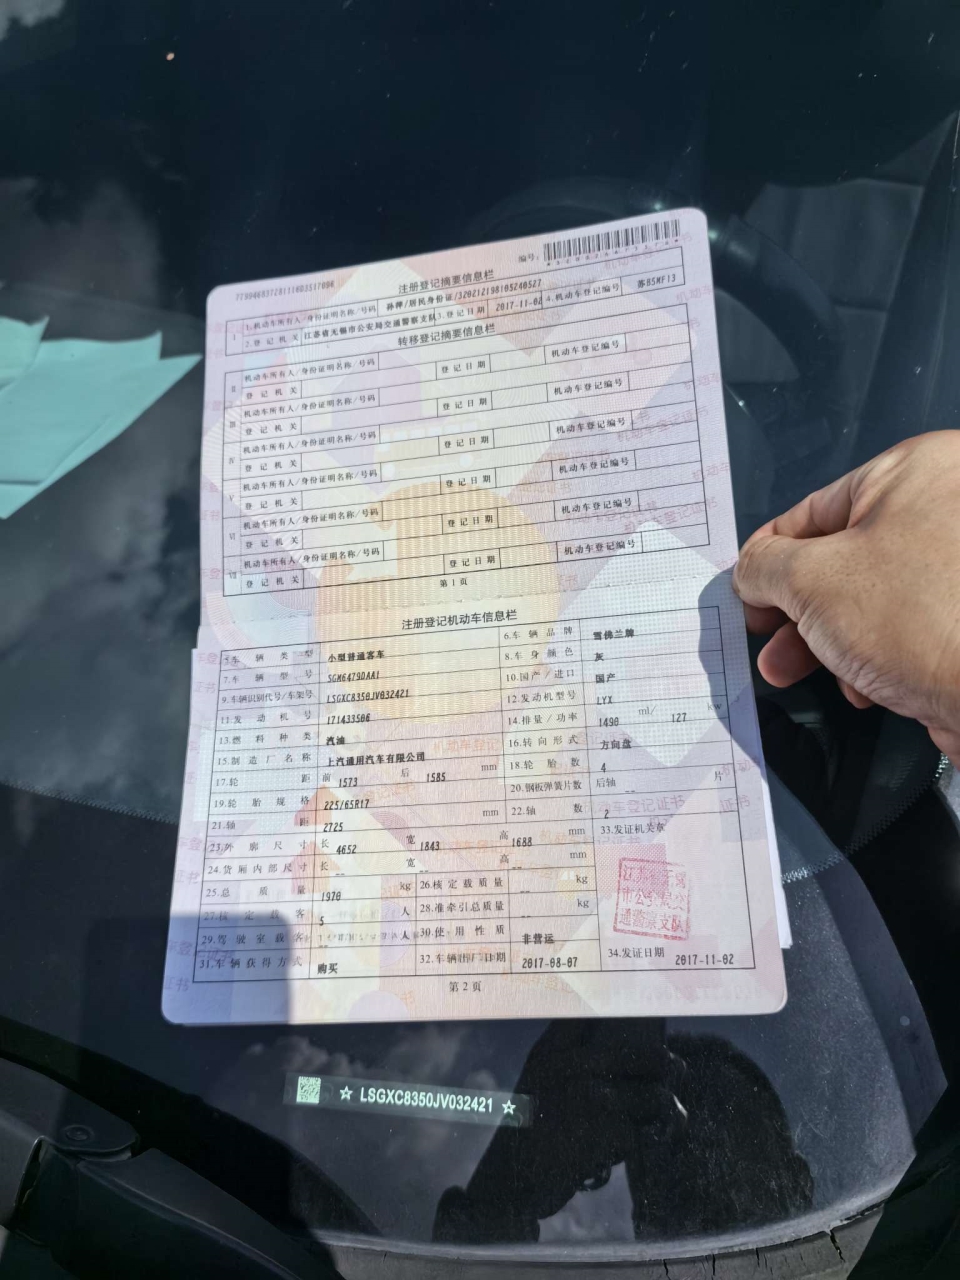 编号:
注册登记摘要信息栏
I 1.机动车所有人/身份证明名称/号码 /居民身份证/320212198105240527
2.登记机关 江苏省无锡市公安局交通警察支队 3.登记日期 2017-11-02 4.机动车登记编号
转移登记摘要信息栏
II 机动车所有人/身份证明名称/号码
登记机关 登记日期 机动车登记编号
III 机动车所有人/身份证明名称/号码
登记机关 登记日期 机动车登记编号
IV 机动车所有人/身份证明名称/号码
登记机关 登记日期 机动车登记编号
V 机动车所有人/身份证明名称/号码
登记机关 登记日期 机动车登记编号
VI 机动车所有人/身份证明名称/号码
登记机关 登记日期 机动车登记编号
VII 机动车所有人/身份证明名称/号码
登记机关 登记日期 机动车登记编号
第1页
注册登记机动车信息栏
5.车辆类型 小型普通客车 6.车辆品牌 雪佛兰牌
7.车辆型号 SGM6479DAA1 8.车身颜色 灰
9.车辆识别代号/车架号 LSGXC8350JV032421 10.国产/进口 国产
11.发动机号 171433506 12.发动机型号 LYX
13.燃料种类 汽油 14.排量/功率 1490 ml/ 127 kw
15.制造厂名称 上汽通用汽车有限公司 16.转向形式 方向盘
17.轮距 前 1573 后 1585 mm 18.轮胎数 4
19.轮胎规格 225/65R17 20.钢板弹簧片数 后轴 -- 片
21.轴距 2725 mm 22.轴数 2
23.外廓尺寸 长 4652 宽 1843 高 1688 mm 33.发证机关章
24.货厢内部尺寸 长 -- 宽 -- 高 -- mm
25.总质量 1970 kg 26.核定载质量 -- kg
27.核定载客 5 人 28.准牵引总质量 -- kg
29.驾驶室载客 -- 人 30.使用性质 非营运
31.车辆获得方式 购买 32.车辆出厂日期 2017-08-07 34.发证日期 2017-11-02
第2页
☆ LSGXC8350JV032421 ☆